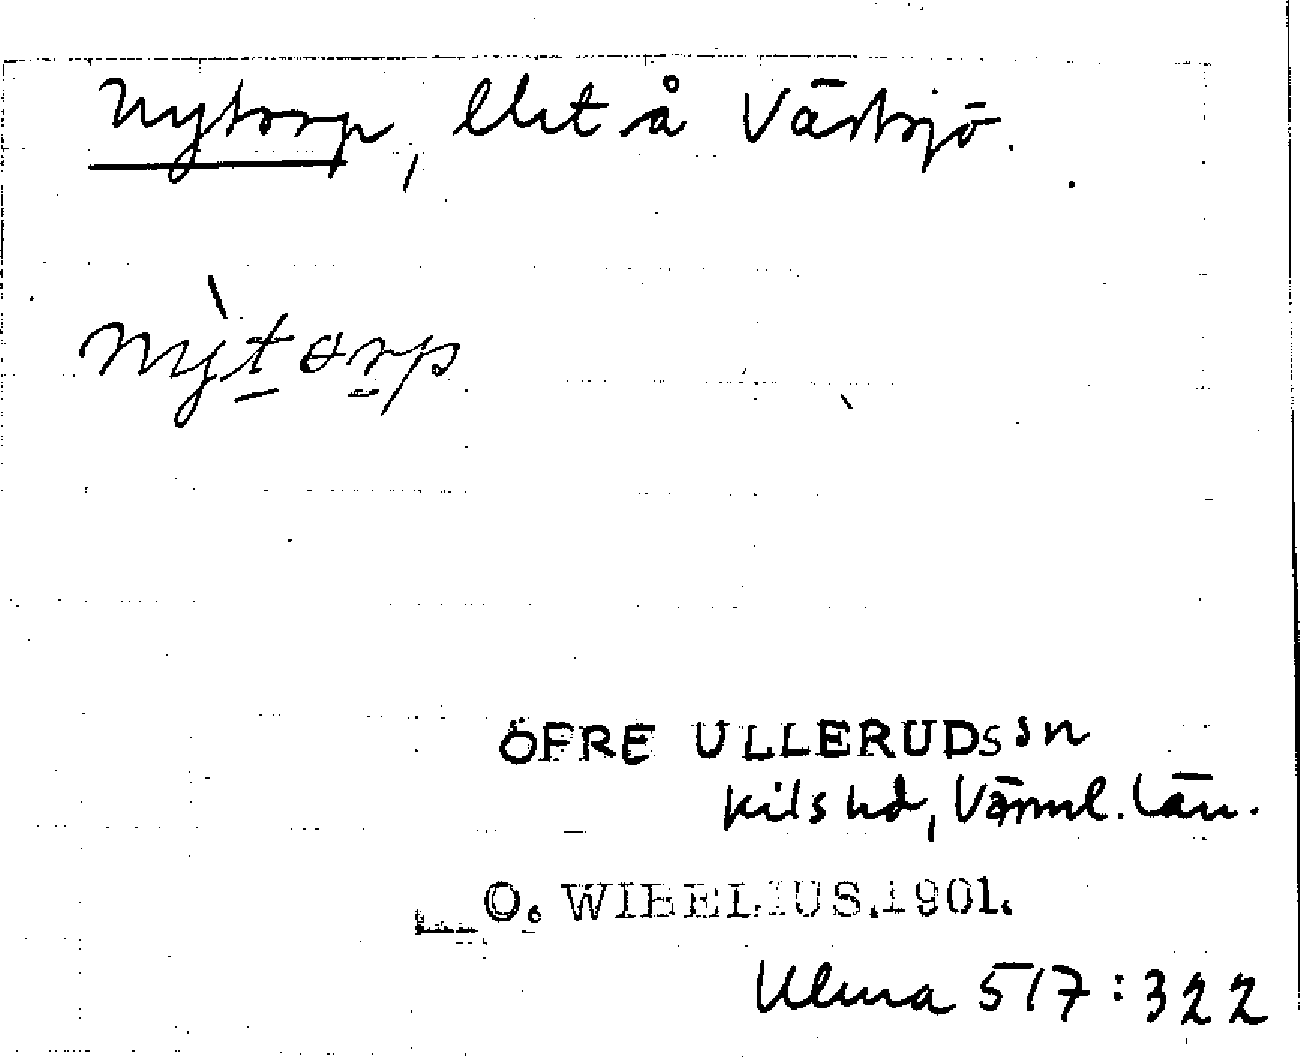 Nytorp, lht å Västsjö.
nỳtorp
ÖFRE ULLERUDS sn
Kils hd, Värml. län.
O. WIBELIUS.1901.
Ulma 517:322